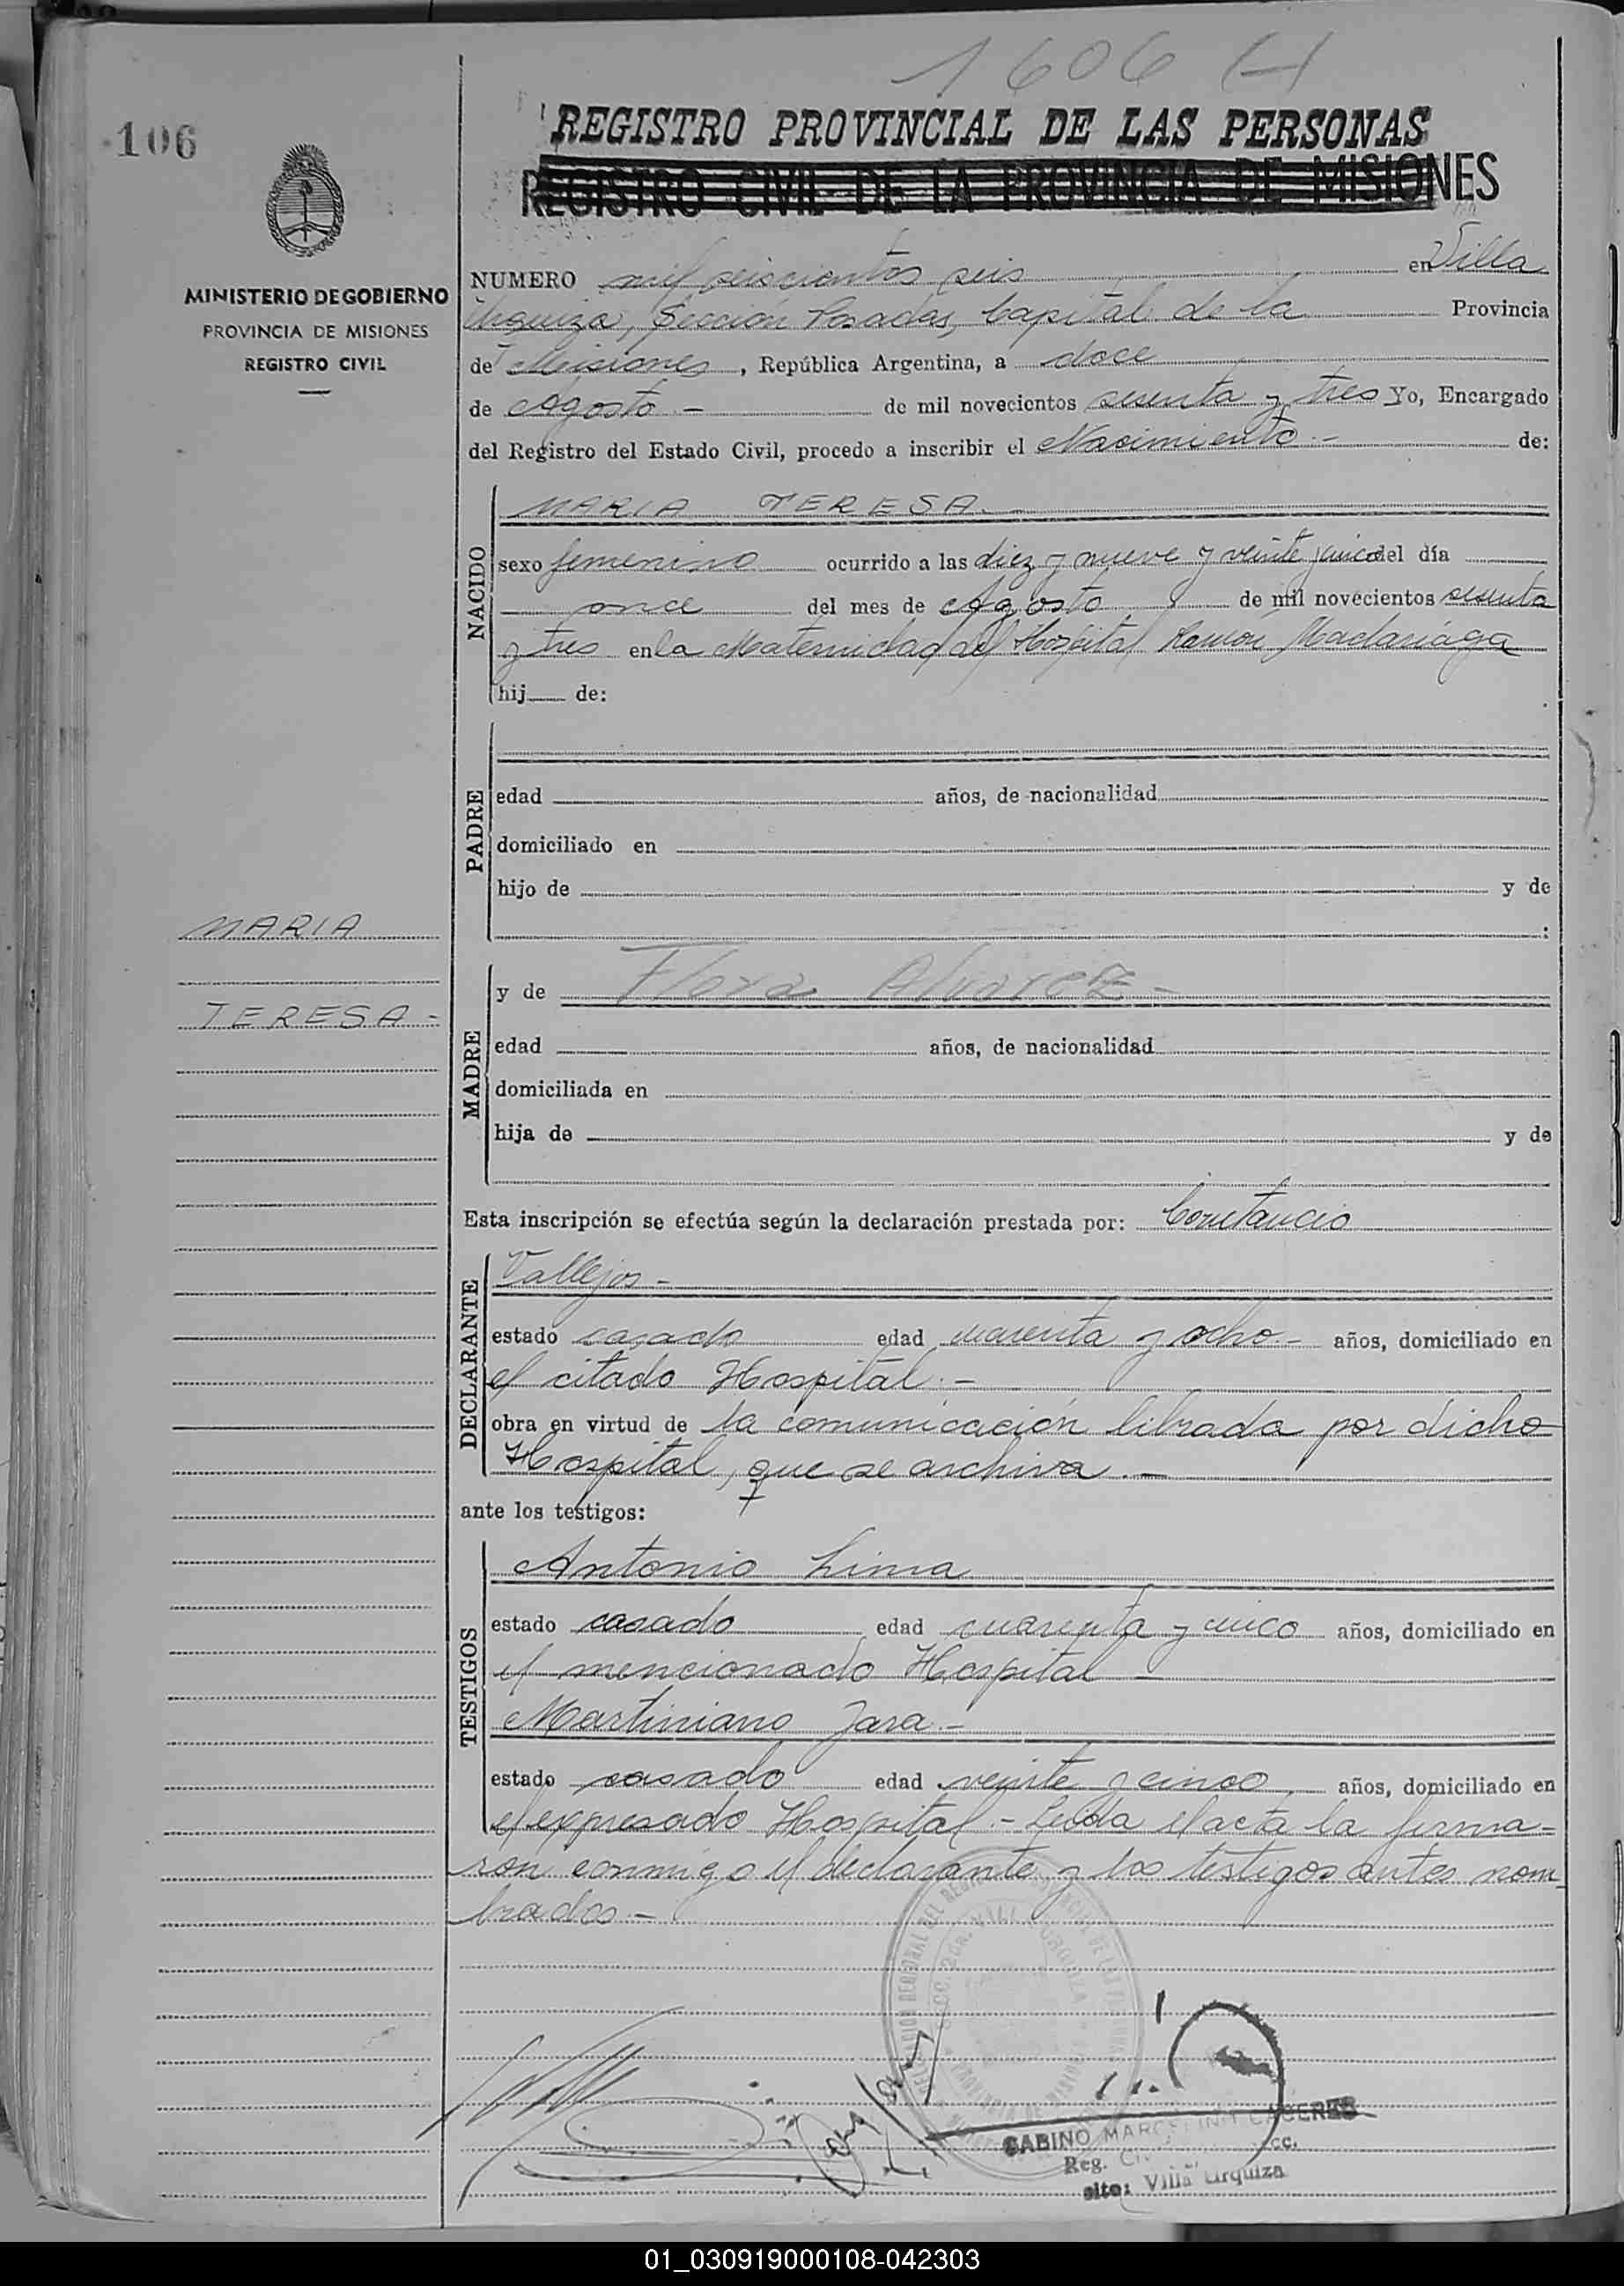 1606 H
106
REGISTRO PROVINCIAL DE LAS PERSONAS
REGISTRO CIVIL DE LA PROVINCIA DE MISIONES
MINISTERIO DE GOBIERNO
PROVINCIA DE MISIONES
REGISTRO CIVIL
NUMERO mil seiscientos seis en Villa
Urquiza, Sección Posadas, Capital de la Provincia
de Misiones, República Argentina, a doce
de Agosto - de mil novecientos sesenta y tres Yo, Encargado
del Registro del Estado Civil, procedo a inscribir el Nacimiento.- de:
NACIDO
MARIA TERESA.
sexo femenino ocurrido a las diez y nueve y veinte y cinco del día
once del mes de Agosto de mil novecientos sesenta
y tres en la Maternidad del Hospital Ramón Madariaga
hij de:
PADRE
edad años, de nacionalidad
domiciliado en
hijo de y de
:
MARIA
TERESA -
MADRE
y de Flora Alvarez -
edad años, de nacionalidad
domiciliada en
hija de y de
Esta inscripción se efectúa según la declaración prestada por: Constancio
DECLARANTE
Vallejos -
estado casado edad cuarenta y ocho.- años, domiciliado en
el citado Hospital.-
obra en virtud de la comunicación librada por dicho
Hospital, que se archiva.-
ante los testigos:
TESTIGOS
Antonio Lima
estado casado edad cuarenta y cinco años, domiciliado en
el mencionado Hospital -
Martiniano Jara.-
estado casado edad veinte y cinco años, domiciliado en
el expresado Hospital.- Leída el acta la firma-
ron conmigo el declarante y los testigos antes nom
brados.-
GABINO MARCELINO CACERES
Reg. Civ
Villa Urquiza
01_030919000108-042303